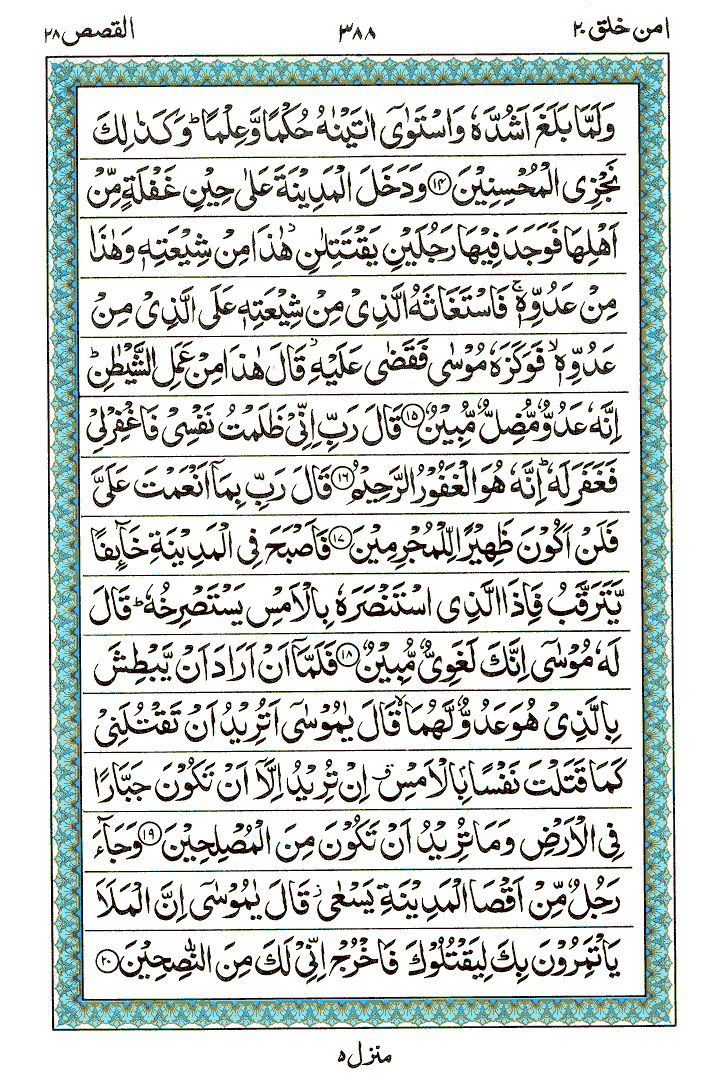 امن خلق ٢٠ ٣٨٨ القصص ٢٨
وَلَمَّا بَلَغَ اَشُدَّهٗ وَاسْتَوٰٓى اٰتَيْنٰهُ حُكْمًا وَّعِلْمًا ؕ وَكَذٰلِكَ
نَجْزِى الْمُحْسِنِيْنَ ﴿١٤﴾ وَدَخَلَ الْمَدِيْنَةَ عَلٰى حِيْنِ غَفْلَةٍ مِّنْ
اَهْلِهَا فَوَجَدَ فِيْهَا رَجُلَيْنِ يَقْتَتِلٰنِ ؗ هٰذَا مِنْ شِيْعَتِهٖ وَهٰذَا
مِنْ عَدُوِّهٖ ۚ فَاسْتَغَاثَهُ الَّذِىْ مِنْ شِيْعَتِهٖ عَلَى الَّذِىْ مِنْ
عَدُوِّهٖ ۙ فَوَكَزَهٗ مُوْسٰى فَقَضٰى عَلَيْهِ ؗ قَالَ هٰذَا مِنْ عَمَلِ الشَّيْطٰنِ ؕ
اِنَّهٗ عَدُوٌّ مُّضِلٌّ مُّبِيْنٌ ﴿١٥﴾ قَالَ رَبِّ اِنِّىْ ظَلَمْتُ نَفْسِىْ فَاغْفِرْلِىْ
فَغَفَرَ لَهٗ ؕ اِنَّهٗ هُوَ الْغَفُوْرُ الرَّحِيْمُ ﴿١٦﴾ قَالَ رَبِّ بِمَاۤ اَنْعَمْتَ عَلَىَّ
فَلَنْ اَكُوْنَ ظَهِيْرًا لِّلْمُجْرِمِيْنَ ﴿١٧﴾ فَاَصْبَحَ فِى الْمَدِيْنَةِ خَآئِفًا
يَّتَرَقَّبُ فَاِذَا الَّذِى اسْتَنْصَرَهٗ بِالْاَمْسِ يَسْتَصْرِخُهٗ ؕ قَالَ
لَهٗ مُوْسٰٓى اِنَّكَ لَغَوِىٌّ مُّبِيْنٌ ﴿١٨﴾ فَلَمَّاۤ اَنْ اَرَادَ اَنْ يَّبْطِشَ
بِالَّذِىْ هُوَ عَدُوٌّ لَّهُمَا ۙ قَالَ يٰمُوْسٰٓى اَتُرِيْدُ اَنْ تَقْتُلَنِىْ
كَمَا قَتَلْتَ نَفْسًا بِالْاَمْسِ ۖ اِنْ تُرِيْدُ اِلَّاۤ اَنْ تَكُوْنَ جَبَّارًا
فِى الْاَرْضِ وَمَا تُرِيْدُ اَنْ تَكُوْنَ مِنَ الْمُصْلِحِيْنَ ﴿١٩﴾ وَجَآءَ
رَجُلٌ مِّنْ اَقْصَا الْمَدِيْنَةِ يَسْعٰى ؗ قَالَ يٰمُوْسٰٓى اِنَّ الْمَلَاَ
يَاْتَمِرُوْنَ بِكَ لِيَقْتُلُوْكَ فَاخْرُجْ اِنِّىْ لَكَ مِنَ النّٰصِحِيْنَ ﴿٢٠﴾
منزل ٥